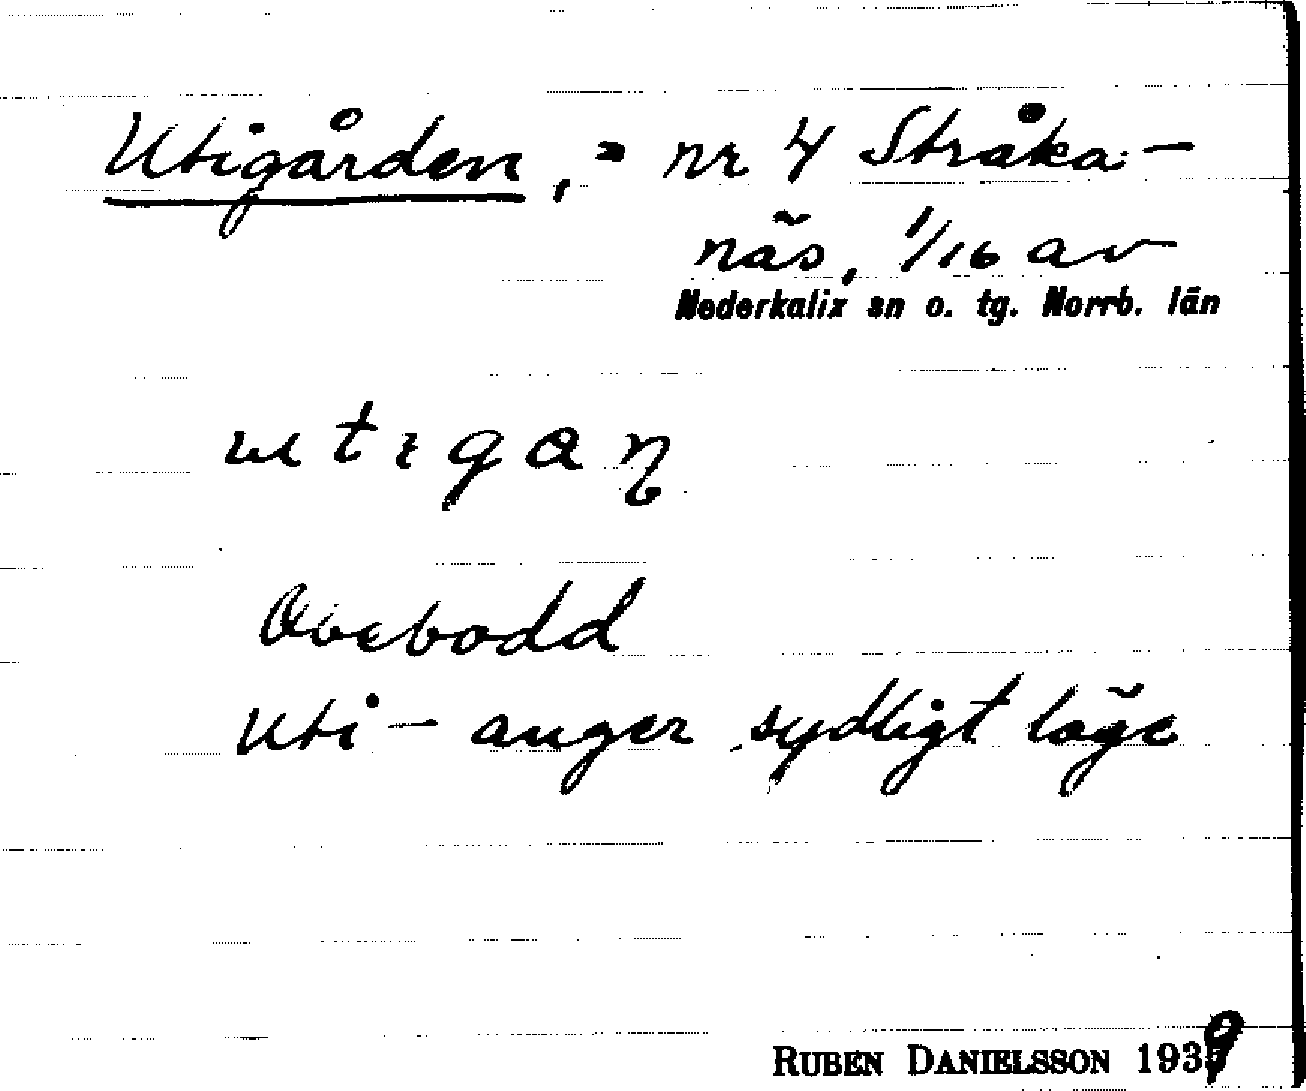 Utigården, = nr 4 Stråka-
näs, 1/16 av
Nederkalix sn o. tg. Norrb. län
Obebodd
Uti- anger sydligt läge
RUBEN DANIELSSON 1939